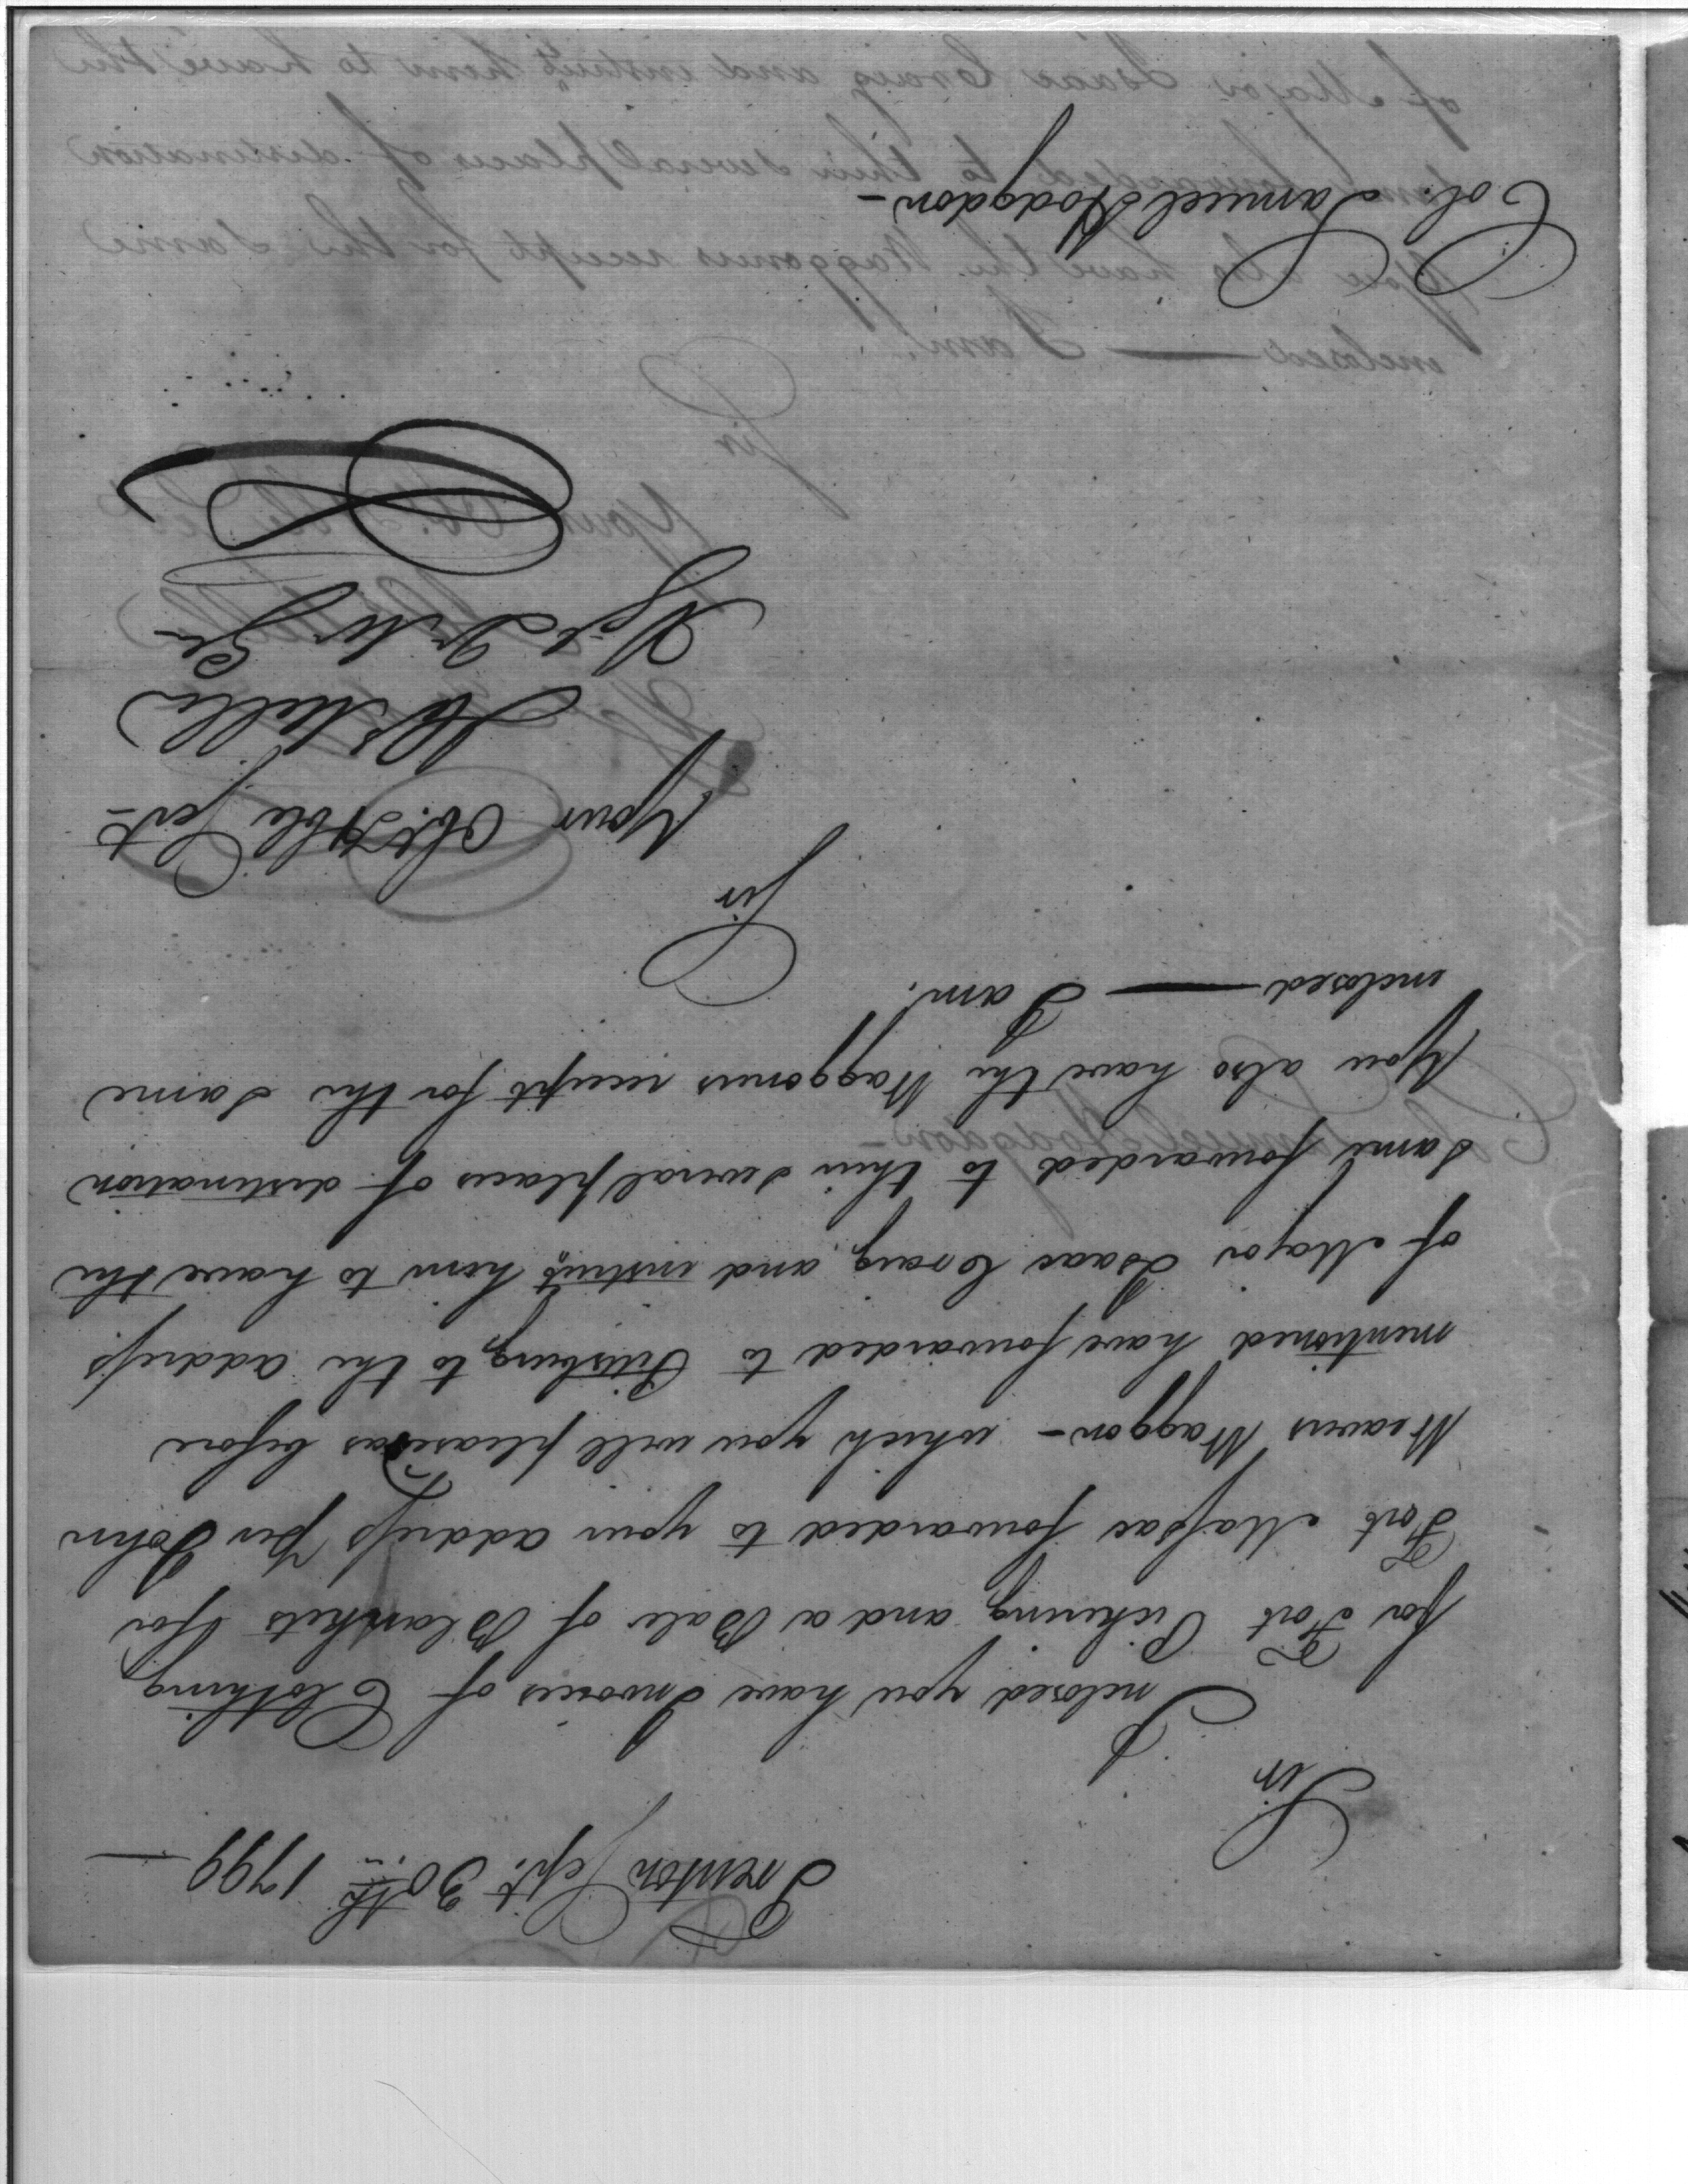 Trenton Sept. 30th 1799 —
Sir
Inclosed you have Invoices of Clothing
for Fort Pickering and a Bale of Blankets for
Fort Massac forwarded to your address per John
Weavers Waggon - which you will please as before
mentioned have forwarded to Pittsburg to the address
of Major Isaac Craig and instruct him to have the
same forwarded to their several places of destination
You also have the Waggoners receipt for the Same
inclosed — I am.
Sir
Your Obt. Hble Sert-
Col. Samuel Hodgdon-